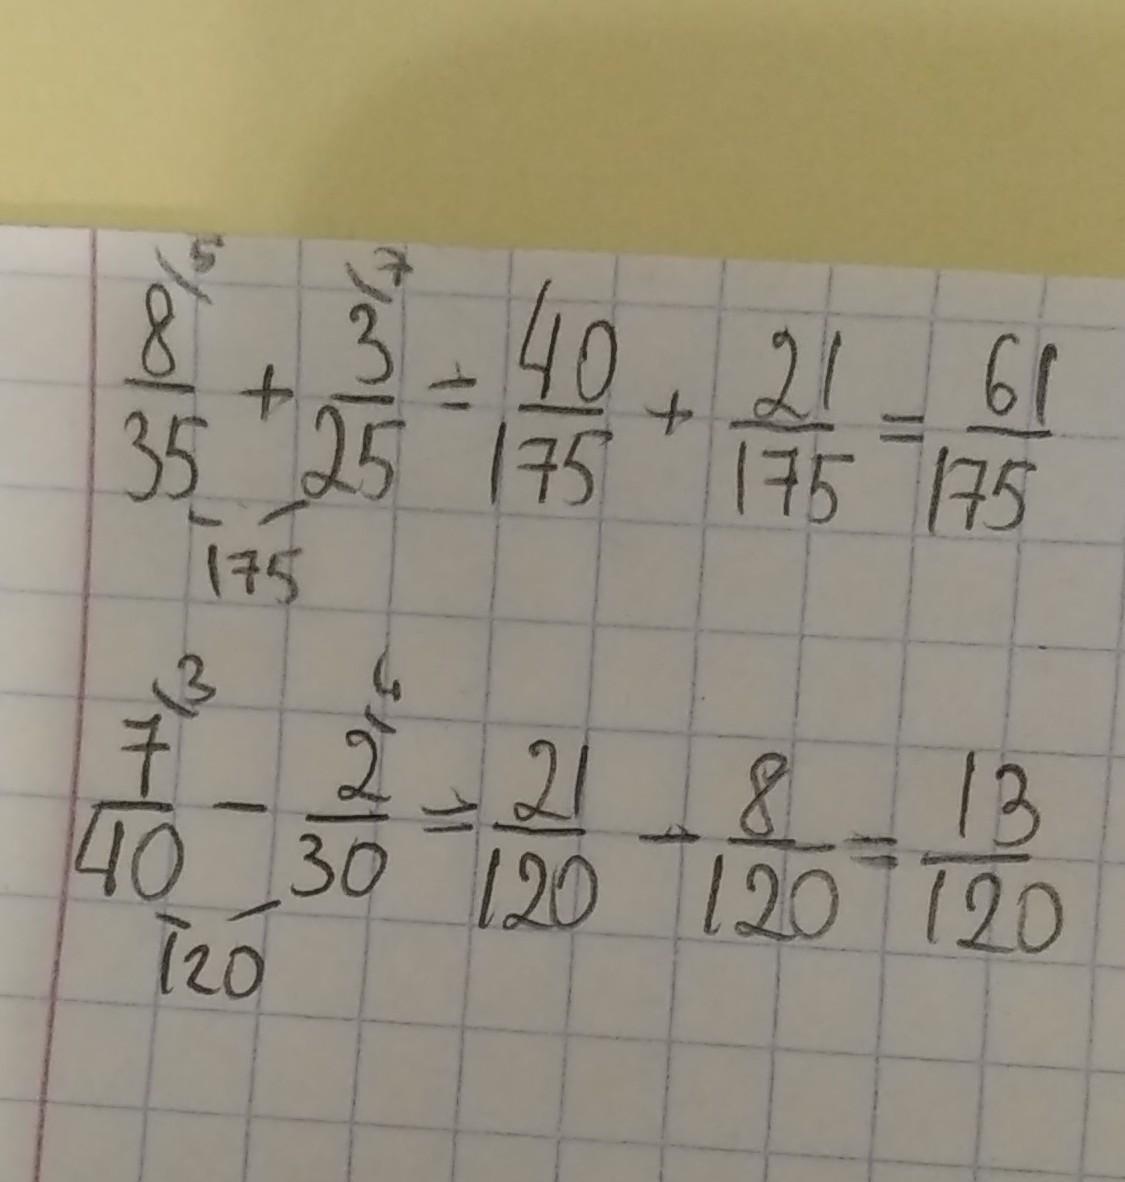 8/35 \5 + 3/25 \7 = 40/175 + 21/175 = 61/175
175
7/40 \3 - 2/30 \4 = 21/120 - 8/120 = 13/120
120